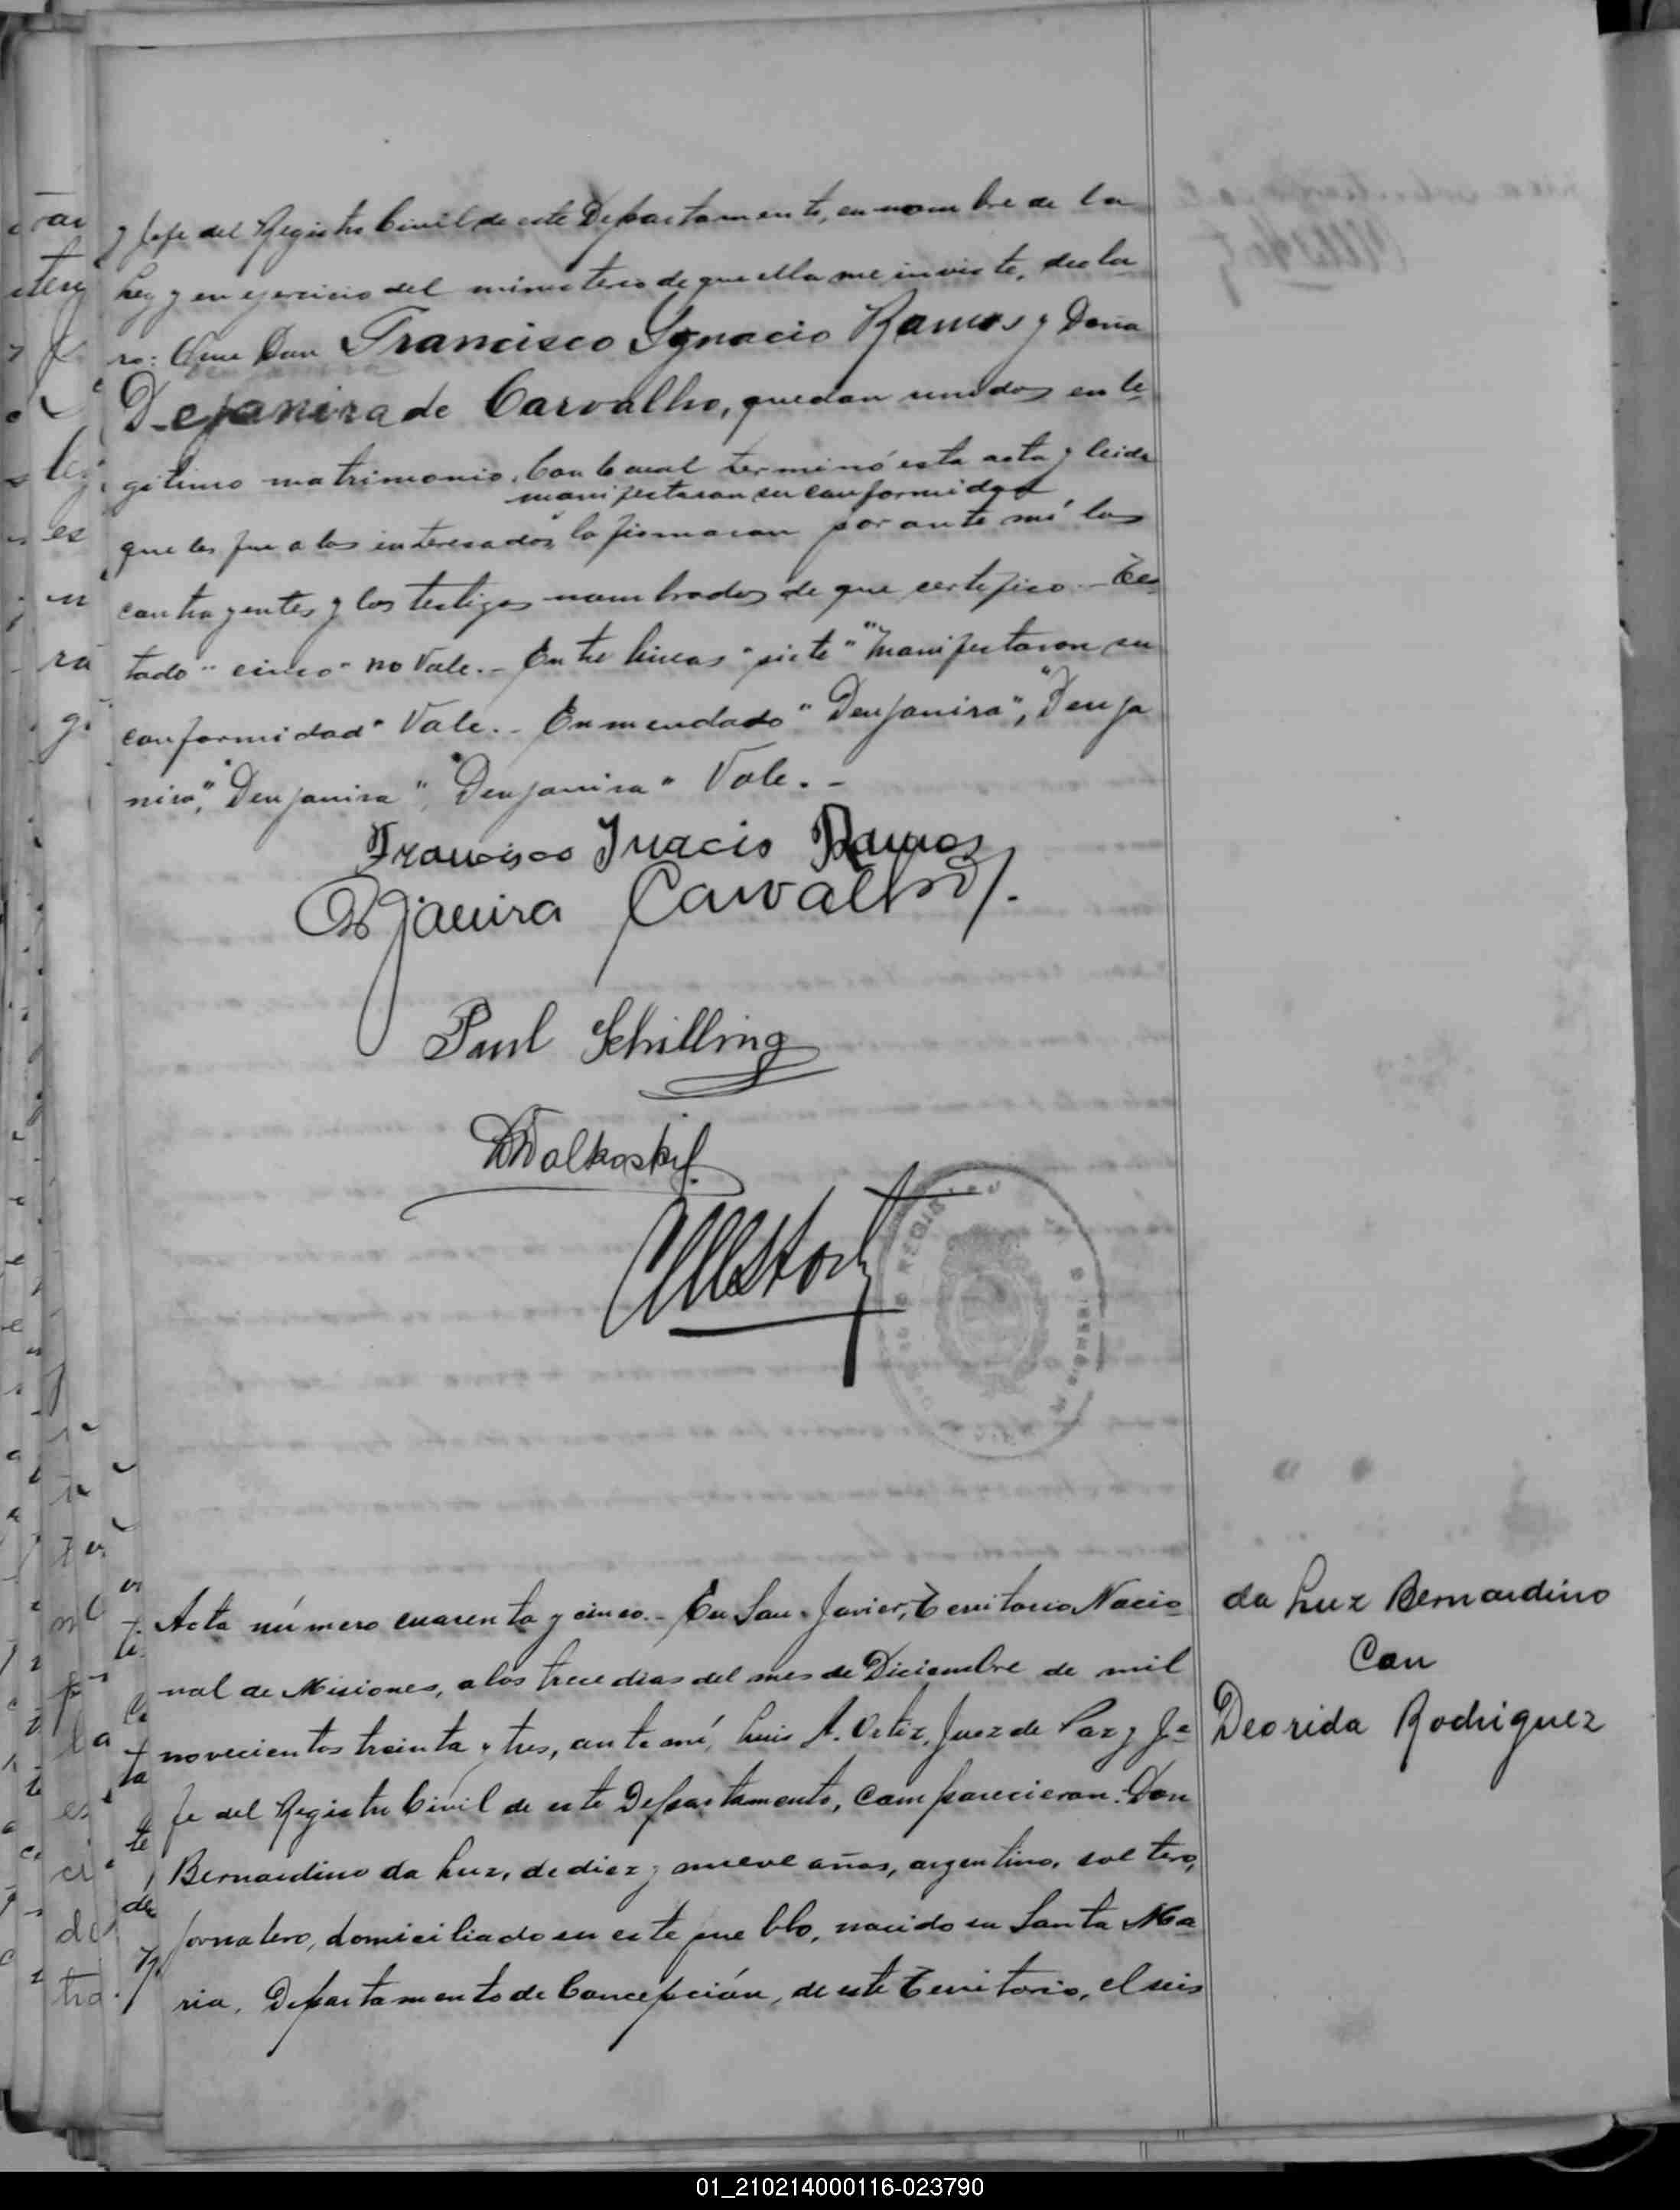 y Jefe del Registro Civil de este Departamento, en nombre de la
Ley y en ejercicio del ministerio de que ella me inviste, decla
ro: Que Don Francisco Ygnacio Ramos y Doña
Dejanira de Carvalho, quedan unidos en le
gítimo matrimonio. Con lo cual terminó esta acta y leida
manifestaron su conformidad
que les fue a los interesados, la firmaron por ante mí los
contrayentes y los testigos nombrados de que certifico.- Tes
tado "cinco" no Vale.- Entre lineas "siete" "manifestaron su
conformidad" Vale.- Enmendado "Denjanira", "Denja
nira", "Denjanira", "Denjanira" Vale.-
Francisco Inacio Ramos
Dejanira Carvalho
Paul Schilling
REGIS
Acta número cuarenta y cinco.- En San Javier, Territorio Nacio
nal de Misiones, a los trece dias del mes de Diciembre de mil
novecientos treinta y tres, ante mí, Luis A. Ortiz, Juez de Paz y Je
fe del Registro Civil de este Departamento, comparecieron: Don
Bernardino da Luz, de diez y nueve años, argentino, soltero,
jornalero, domiciliado en este pueblo, nacido en Santa Ma
ria, Departamento de Concepción, de este Territorio, el seis
da Luz Bernardino
Con
Deorida Rodriguez
01_210214000116-023790